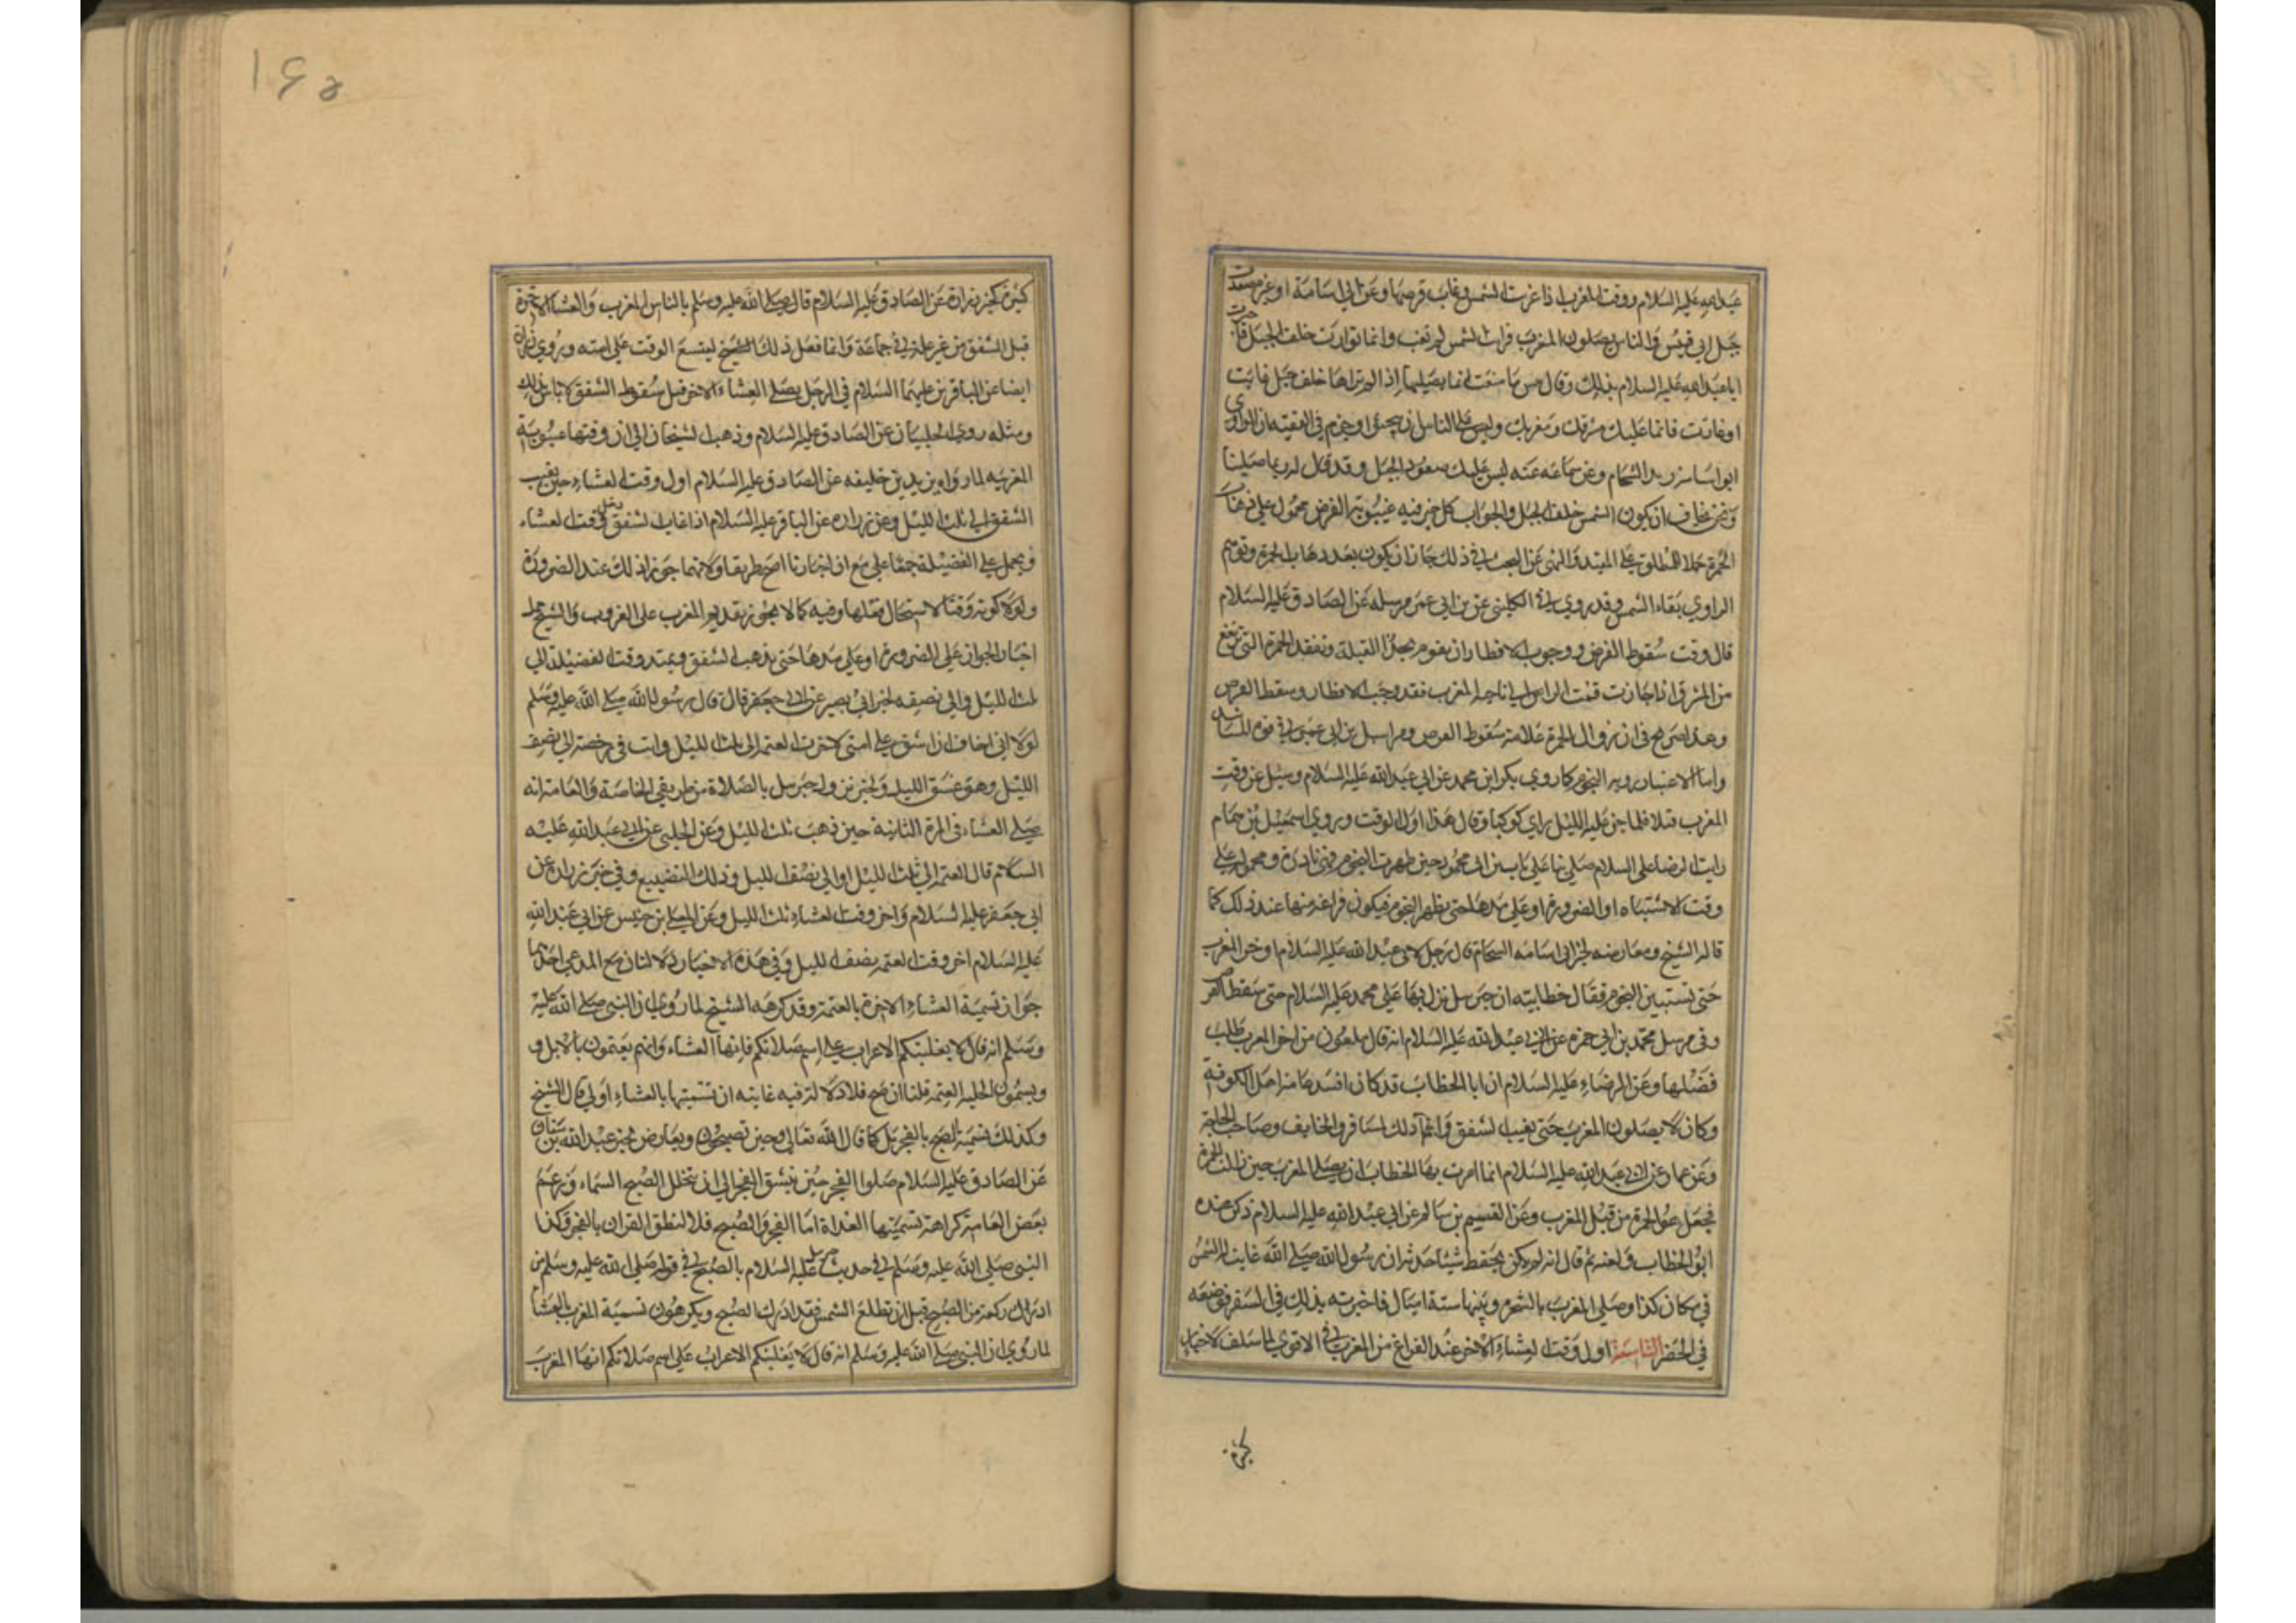 عبدالله عليه السلام ووقت المغرب اذا غربت الشمس وغاب قرصها وعن ابي اسامة او غيره صعدت
جبل ابي قبيس والناس يصلون المغرب فرايت الشمس لم تغب وانما توارت خلف الجبل فاخبرت
ابا عبدالله عليه السلام بذلك وقال بئس ما صنعت انما تصليها اذا لم ترها خلف جبل غابت
او غارت فانما عليك مشرقك ومغربك وليس على الناس ان يبحثوا وجزم في الفقيه ان الراوي
ابو اسامة زيد الشحام وعن سماعه عنه ليس عليك صعود الجبل وقد قال له ربما صلينا
ونحن نخاف ان يكون الشمس خلف الجبل والجواب كل خبر فيه غيبوبة القرص محمول على ذهاب
الحمرة حملا للمطلق على المقيد والنهي عن البحث في ذلك جاز ان يكون بعد ذهاب الحمرة وتوهم
الراوي بقاء الشمس وقد روي الكليني عن بن ابي عمير مرسله عن الصادق عليه السلام
قال وقت سقوط القرص ووجوب الافطار ان يقوم بحذاء القبلة وتفقد الحمرة التي ترتفع
من المشرق اذا جازت قمت الراس الى ناحية المغرب فقد وجب الافطار وسقط القرص
وهذا صريح في ان زوال الحمرة علامة سقوط القرص ومراسيل بن ابي عمير في قوة المسانيد
واما الاعتبار بروية النجوم كما روي بكر ابن محمد عن ابي عبدالله عليه السلام وسئل عن وقت
المغرب فتلا فلما جن عليه الليل راي كوكبا وقال هذا اول الوقت وروي اسمعيل بن همام
رايت الرضا على السلام صلي بنا على باب ابن ابي محمود حين ظهرت النجوم فهي نادرة ومحمولة على
وقت الاشتباه او الضرورة او على مدها حتى يظهر النجوم فيكون فراغه منها عند ذلك كما
قاله الشيخ ومعارضه بخبر ابي اسامه الشحام قال رجل لابي عبدالله عليه السلام اوخر المغرب
حتى تستبين النجوم فقال خطابيه ان جبرئيل نزل بها على محمد عليه السلام حتى سقط القرص
وفي مرسل محمد بن ابي حمزه عن ابي عبدالله عليه السلام انه قال ملعون من اخر المغرب طلب
فضلها وعن الرضاء عليه السلام ان ابا الخطاب قد كان افسد عامة اهل الكوفة
وكان لا يصلون المغرب حتى يغيب الشفق وانما ذلك للمسافر والخايف وصاحب الحاجة
وعن عمار عن ابي عبدالله عليه السلام انما امرت بها الخطاب ان يصلي المغرب حين زالت الحمرة
فجعل هو الحمرة من قبل المغرب وعن القسيم بن سالم عن ابي عبدالله عليه السلام ذكر عنده
ابو الخطاب فلعنه ثم قال انه لم يكن يحفظ شيئا حدثه ان رسول الله صلى الله غابت له الشمس
في مكان كذا وصلى المغرب بالشجرة وبينها ستة اميال فاخبرته بذلك في السفر فوضعه
في الحضر الثامنة اول وقت العشاء الاخر عند الفراغ من المغرب في الاقوي لما سلف ولاخبار
كثيرة
١٤٥
كثيرة كخبر زرارة عن الصادق عليه السلام قال صلى الله عليه وسلم بالناس المغرب والعشاء الاخرة
قبل الشفق من غير علة في جماعة وانما فعل ذلك ليتسع الوقت على امته وروي زرارة
ايضا عن الباقرين عليهما السلام في الرجل يصلي العشاء الاخر قبل سقوط الشفق لا باس بذلك
ومثله روي الحلبيان عن الصادق عليه السلام وذهب الشيخان الى ان وقتها غيبوبة
المغربيه لما رواه يزيد بن خليفه عن الصادق عليه السلام اول وقت العشاء حين يغيب
الشفق الى ثلث الليل وعن زراره عن الباقر عليه السلام اذا غاب الشفق دخل وقت العشاء
ويحمل على الفضيلة جمعا على مع ان اخبارنا اصح طريقا ولانهما جوزا ذلك عند الضرورة
ولولا كونه وقتا لاستحال فعلها وفيه كما لا يجوز تقديم المغرب على الغروب والشيخ حمل
اخبار الجواز على الضرورة او على مدها حتى يذهب الشفق ويمتد وقت الفضيلة الى
ثلث الليل والى نصفه لخبر ابي بصير عن ابي جعفر قال قال رسول الله صلى الله عليه وسلم
لولا اني اخاف ان اشق على امتي لاخرت العتمة الى ثلث الليل وانت في رخصة الى نصف
الليل وهو غسق الليل ولخبر نزول جبرئيل بالصلاة من طريقي الخاصة والعامة انه
صلى العشاء في المرة الثانية حين ذهب ثلث الليل وعن الحلبي عن ابي عبدالله عليه
السلام قال العتمة الى ثلث الليل او الى نصف الليل وذلك التضييع وفي خبر زرارة عن
ابي جعفر عليه السلام واخر وقت العشاء ثلث الليل وعن المعلى بن خنيس عن ابي عبدالله
عليه السلام اخر وقت العتمة نصف الليل وفي هذه الاخبار دلالتان مع المدعي احديهما
جواز تسمية العشاء الاخرة بالعتمة وقد كرهه الشيخ لما روي ان النبي صلى الله عليه
وسلم انه قال لا يغلبنكم الاعراب على اسم صلاتكم فانها العشاء وانهم يعتمون بالابل و
ويسمون الحلبه العتمة قلنا ان صح فلا دلالة فيه غايته ان تسميتها بالعشاء اولى قال الشيخ
وكذلك تسمية الصبح بالفجر بل كما قال الله تعالى وحين تصبحون ويعارض بخبر عبدالله بن سنان
عن الصادق عليه السلام صلوا الفجر حين ينشق الفجر الى ان يتخلل الصبح السماء وزعم
بعض العامة كراهة تسميتها الغداة اما الفجر والصبح فلا لنطق القران بالفجر وكذا
النبي صلى الله عليه وسلم في حديث جبرئيل عليه السلام بالصبح في قوله صلى الله عليه وسلم من
ادرك ركعة من الصبح قبل ان تطلع الشمس فقد ادرك الصبح ويكرهون تسمية المغرب بالعشاء
لما روي ان النبي صلى الله عليه وسلم انه قال لا يغلبنكم الاعراب على اسم صلاتكم انها المغرب